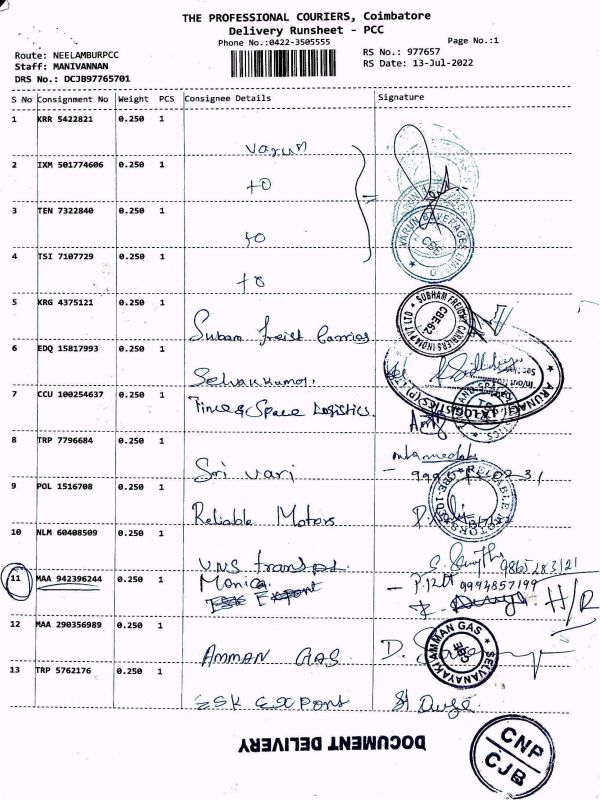 THE PROFESSIONAL COURIERS, Coimbatore
Delivery Runsheet - PCC
Phone No.:0422-3505555
Page No.:1
Route: NEELAMBURPCC
Staff: MANIVANNAN
DRS No.: DCJB97765701
RS No.: 977657
RS Date: 13-Jul-2022
S No Consignment No Weight PCS Consignee Details Signature
1 KRR 5422821 0.250 1
varun
2 IXM 501774606 0.250 1
to
3 TEN 7322840 0.250 1
to
4 TSI 7107729 0.250 1
to
VARUN BEVERAGES LIMITED
CBE
5 KRG 4375121 0.250 1
Subam freist Carries
SUBHAM FREIGHT CARRIERS INDIA PVT LTD
CBE-62
6 EDQ 15817993 0.250 1
Selvankumar.
7 CCU 100254637 0.250 1
Times Space Logistics.
8 TRP 7796684 0.250 1
Sri vari
9 POL 1516708 0.250 1
Reliable Motors
RELIABLE MOTORS
10 NLM 60408509 0.250 1
V.N.S transport.
9865283121
11 MAA 942396244 0.250 1
Monica
ESK Export
9994857199
H/R
12 MAA 290356989 0.250 1
AMMAN GAS
SELVANAYAKI AMMAN GAS
13 TRP 5762176 0.250 1
ESK EXPont
DOCUMENT DELIVERY
CNP
CJB